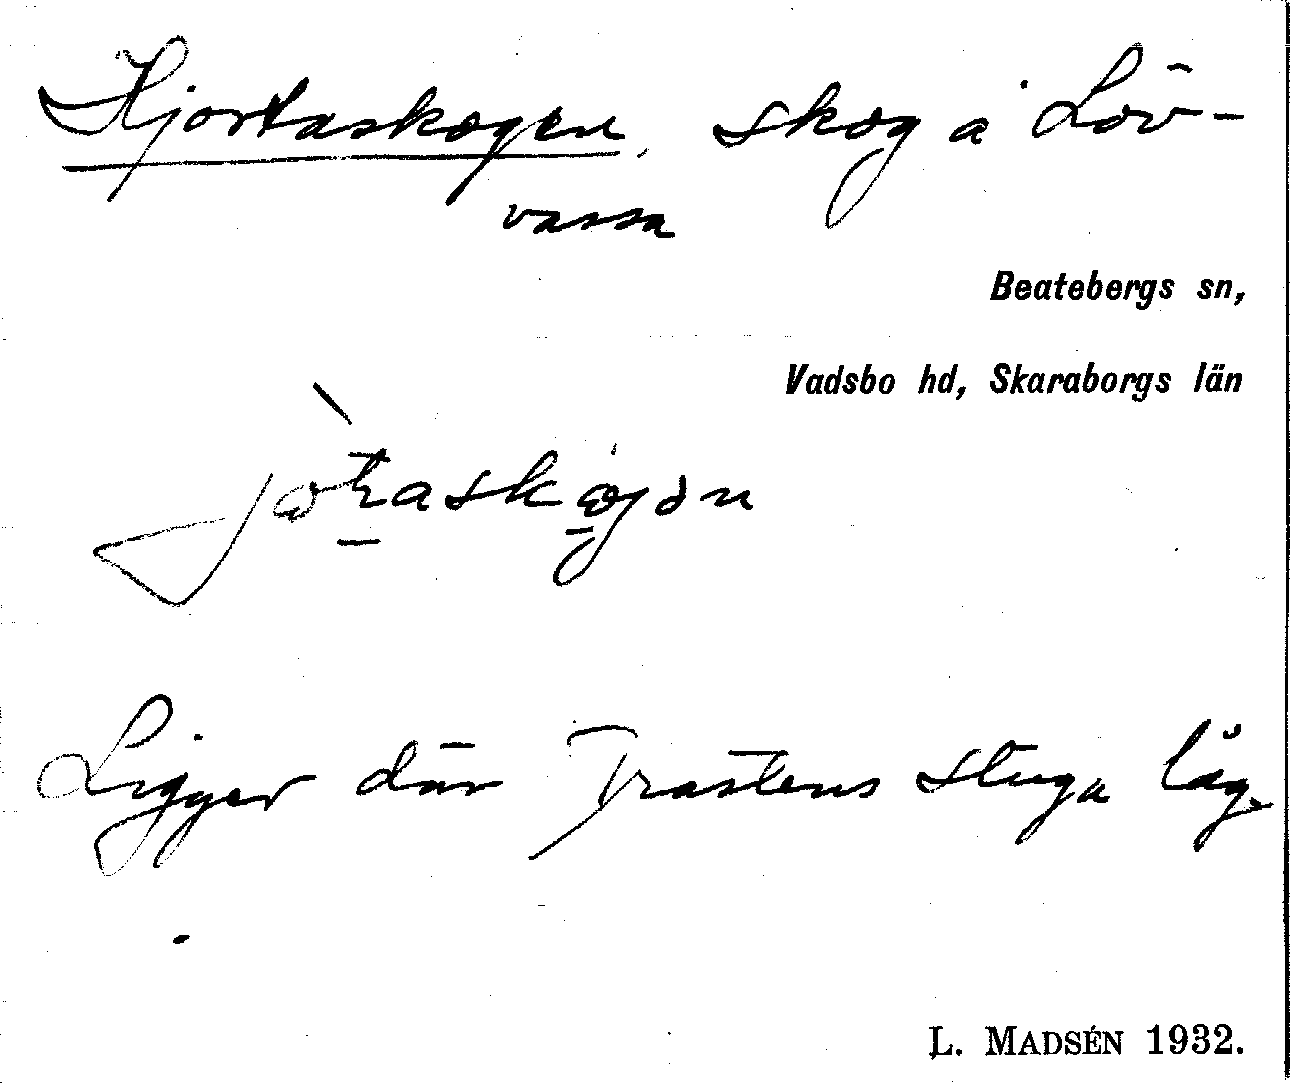 Hjortaskogen, skog å Löv-
vassa
Beatebergs sn,
Vadsbo hd, Skaraborgs län
Ligger där Trastens stuga låg.
L. MADSÉN 1932.